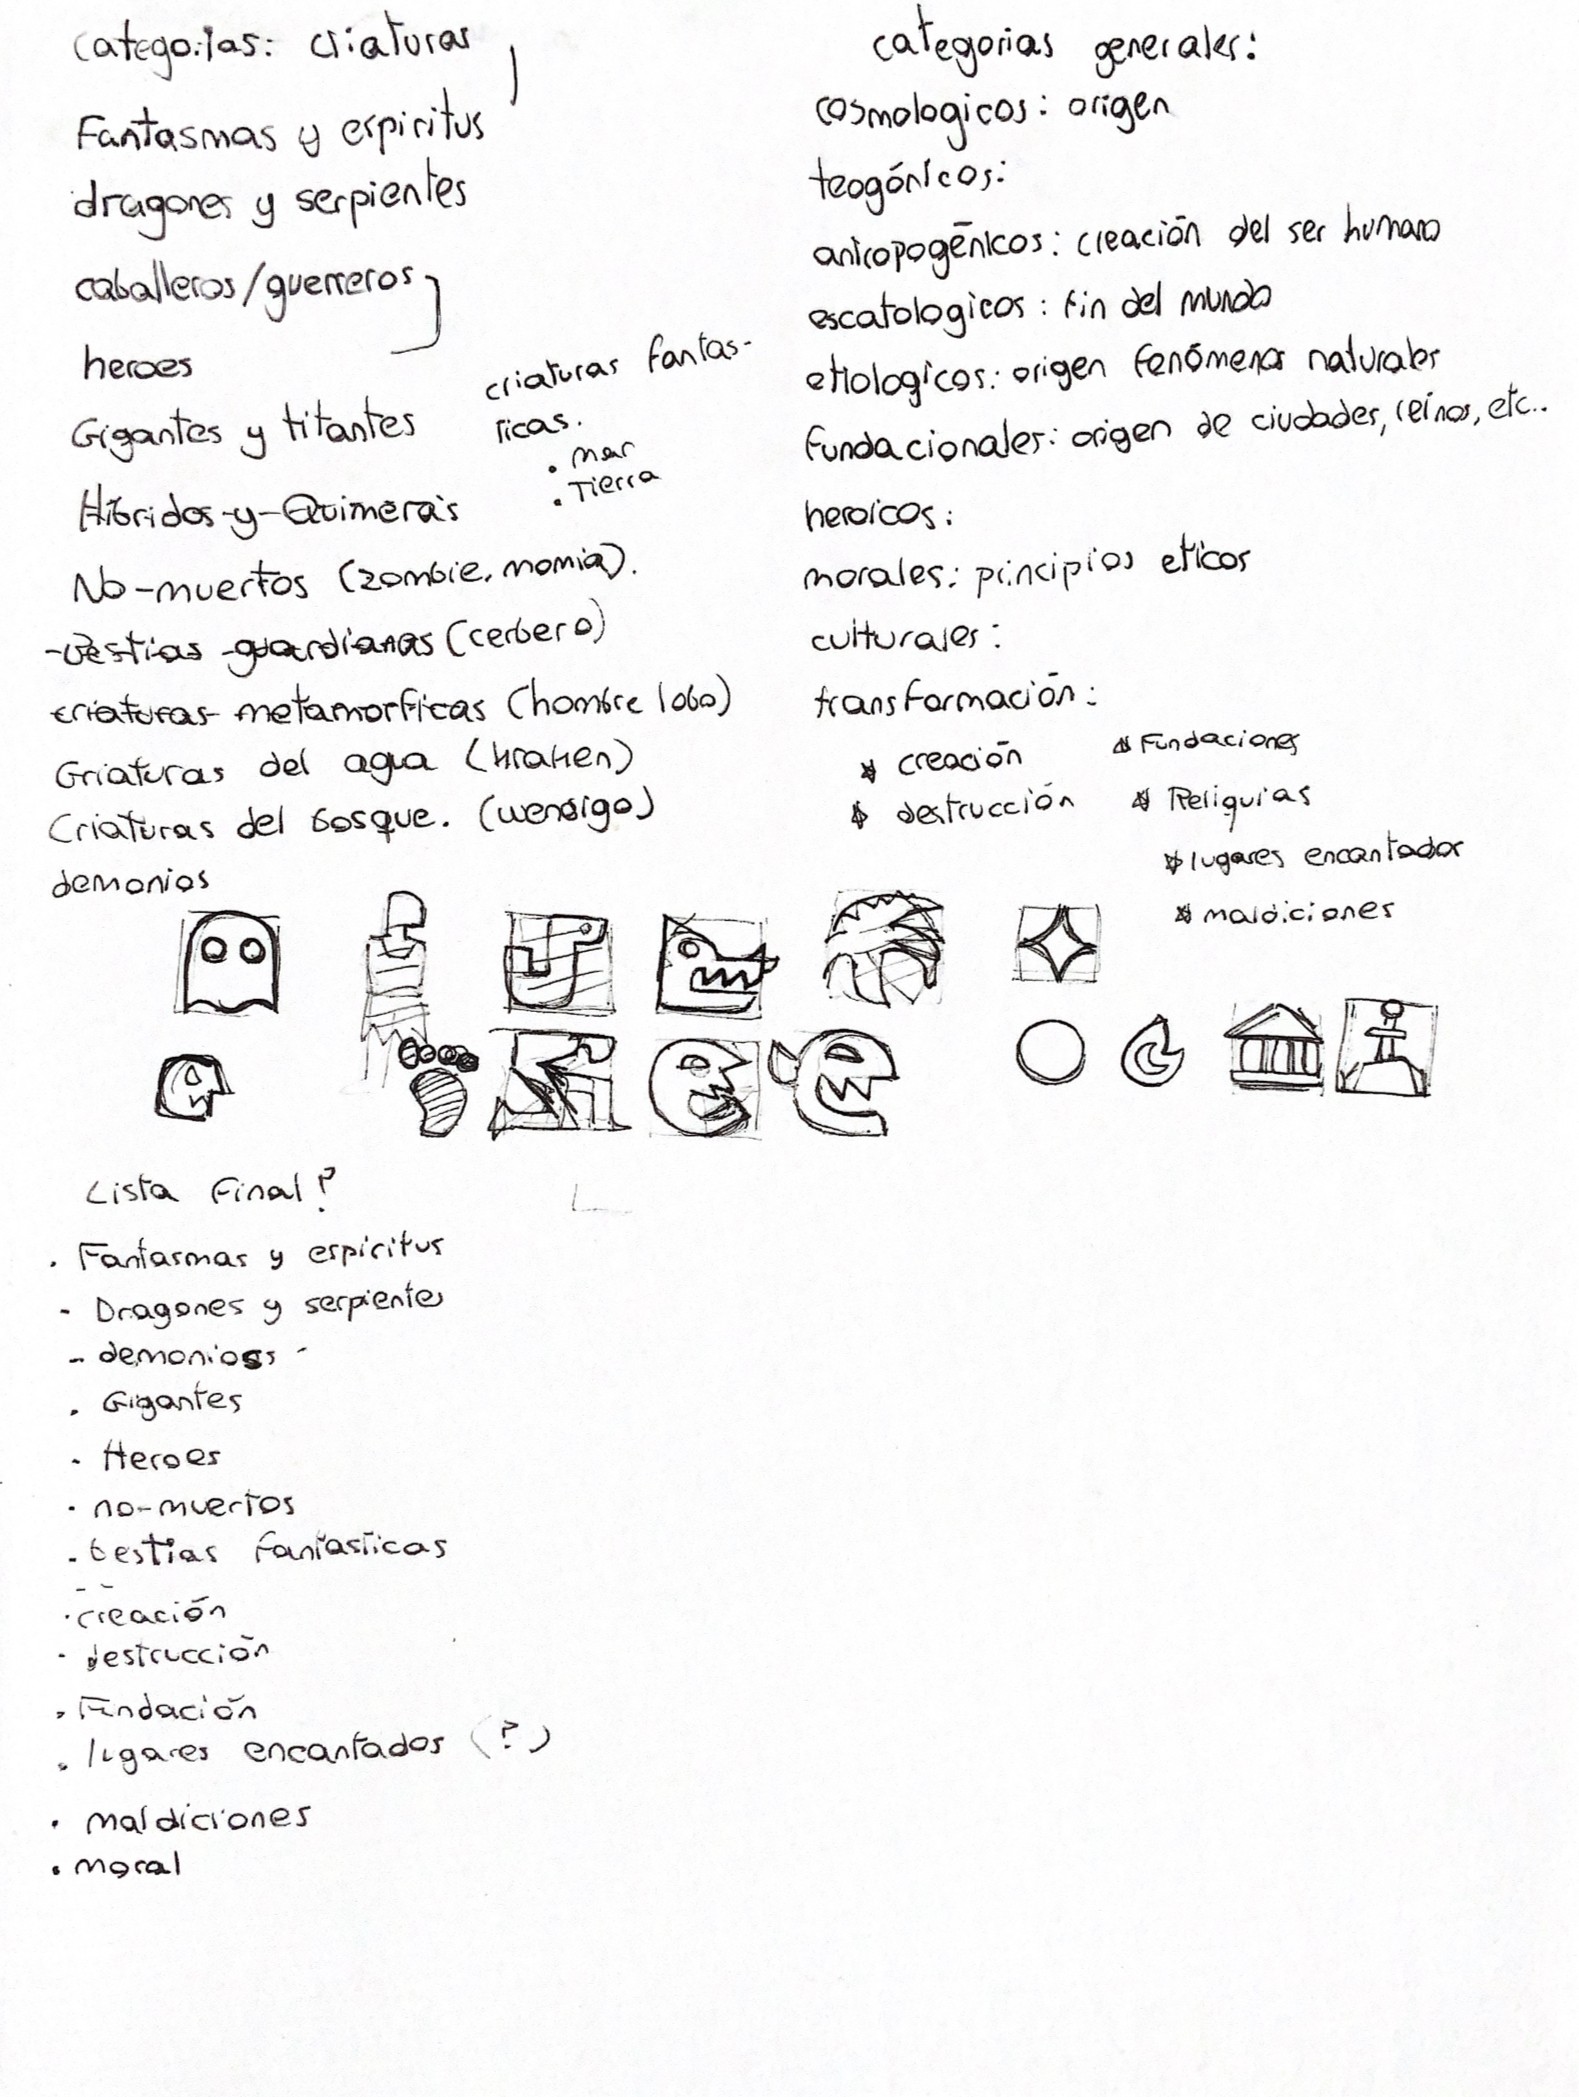 categorias: criaturas
Fantasmas y espiritus
dragones y serpientes
caballeros/guerreros
heroes
Gigantes y titantes
criaturas fantas-
ticas.
. mar
. Tierra
Híbridos y Quimeras
No-muertos (zombie, momia).
-Bestias guardianas (cerbero)
criaturas metamorficas (hombre lobo)
Criaturas del agua (kraken)
Criaturas del bosque. (wendigo)
demonios
categorias generales:
cosmologicos: origen
teogónicos:
antropogénicos: creación del ser humano
escatologicos: fin del mundo
etiologicos: origen fenómenos naturales
fundacionales: origen de ciudades, reinos, etc..
heroicos:
morales: principios eticos
culturales:
transformación:
creación
destrucción
Fundaciones
Reliquias
lugares encantador
maldiciones
Lista Final?
. Fantasmas y espiritus
- Dragones y serpientes
- demonios -
. Gigantes
- Heroes
· no-muertos
- bestias fantasticas
· creación
- destrucción
. Fundación
. lugares encantados (?)
· maldiciones
. moral